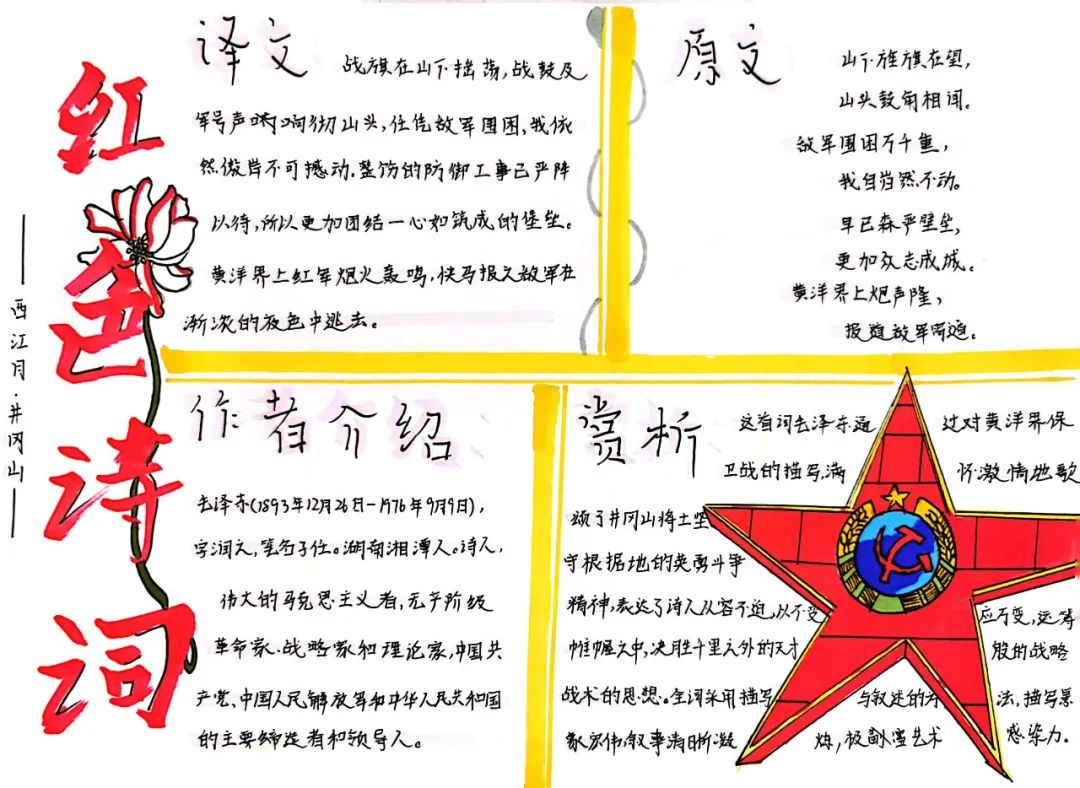 红色诗词
——西江月·井冈山——
译文
战旗在山下摇荡,战鼓及
军号声响彻山头,任凭敌军围困,我依
然傲岸不可撼动。整饬的防御工事已严阵
以待,所以更加团结一心如筑成的堡垒。
黄洋界上红军炮火轰鸣,快马报文敌军在
渐浓的夜色中逃去。
原文
山下旌旗在望,
山头鼓角相闻。
敌军围困万千重,
我自岿然不动。
早已森严壁垒,
更加众志成城。
黄洋界上炮声隆,
报道敌军宵遁。
作者介绍
毛泽东(1893年12月26日-1976年9月9日),
字润之,笔名子任。湖南湘潭人。诗人,
伟大的马克思主义者,无产阶级
革命家、战略家和理论家,中国共
产党、中国人民解放军和中华人民共和国
的主要缔造者和领导人。
赏析
这首词毛泽东通 过对黄洋界保
卫战的描写,满 怀激情地歌
颂了井冈山将士坚
守根据地的英勇斗争
精神,表达了诗人从容不迫,以不变 应万变,运筹
帷幄之中,决胜千里之外的天才 般的战略
战术的思想。全词采用描写 与叙述的方 法,描写景
象宏伟,叙事清晰凝 炼,极富 艺术 感染力。